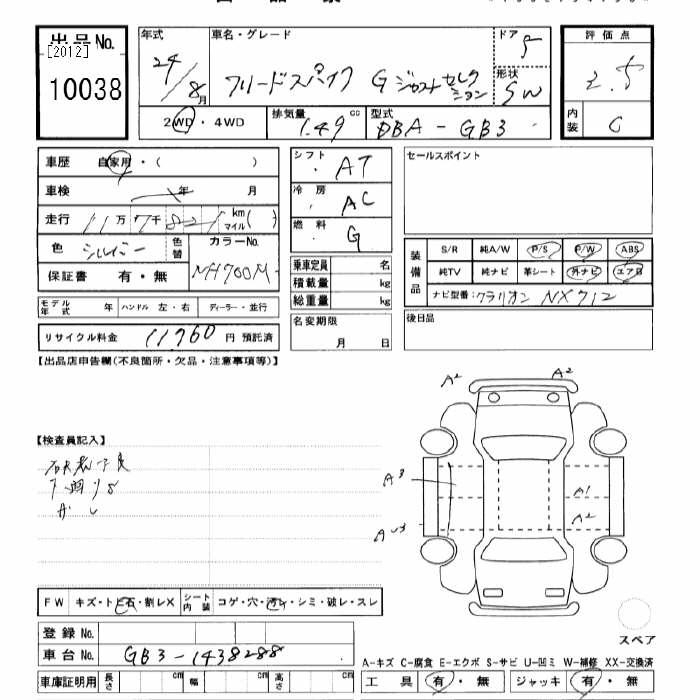 出品No.
[2012]
10038
年式 24/8月
車名・グレード フリードスパイク G ジャストセレクション
ドア 5
形状 SW
評価点 2.5
内装 C
2WD・4WD
排気量 1.49 cc
型式 DBA-GB3
車歴 自家用・( )
車検 年 月
走行 11万7千821 km マイル( )
色 シルバー 色替 カラーNo. NH700M
保証書 有・無
モデル年式 年 ハンドル 左・右 ディーラー・並行
リサイクル料金 11760 円 預託済
シフト AT
冷房 AC
燃料 G
乗車定員 名
積載量 kg
総重量 kg
名変期限 月 日
セールスポイント
装備品
S/R 純A/W P/S P/W ABS
純TV 純ナビ 革シート 外ナビ エアB
ナビ型番:クラリオン NX712
後日品
【出品店申告欄(不良箇所・欠品・注意事項等)】
【検査員記入】
A2 A2
A3 A1
A2
FW キズ・トビ石・割レX シート内装 コゲ・穴・汚レ・シミ・破レ・スレ
登録No.
車台No. GB3-1438288
車庫証明用 長さ cm 幅 cm 高さ cm
スペア
A-キズ C-腐食 E-エクボ S-サビ U-凹ミ W-補修 XX-交換済
工具 有・無 ジャッキ 有・無